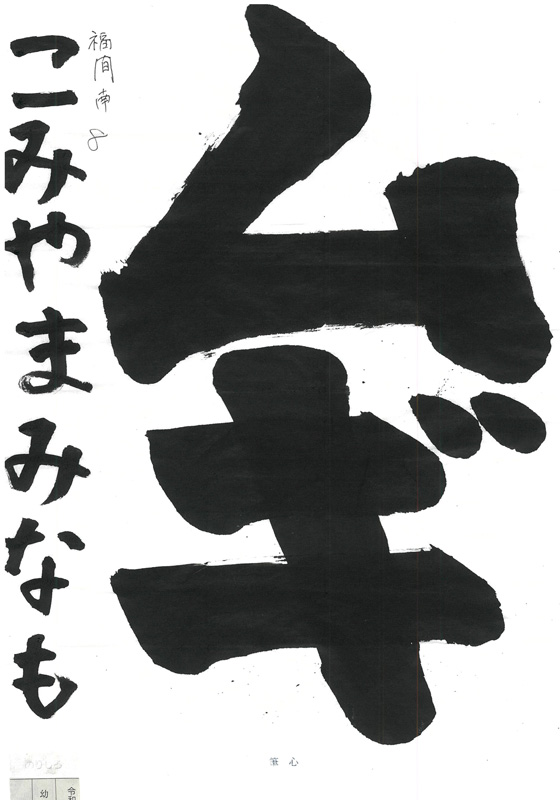 ムギ
福間南
8
こみやまみなも
心筆
令和
幼